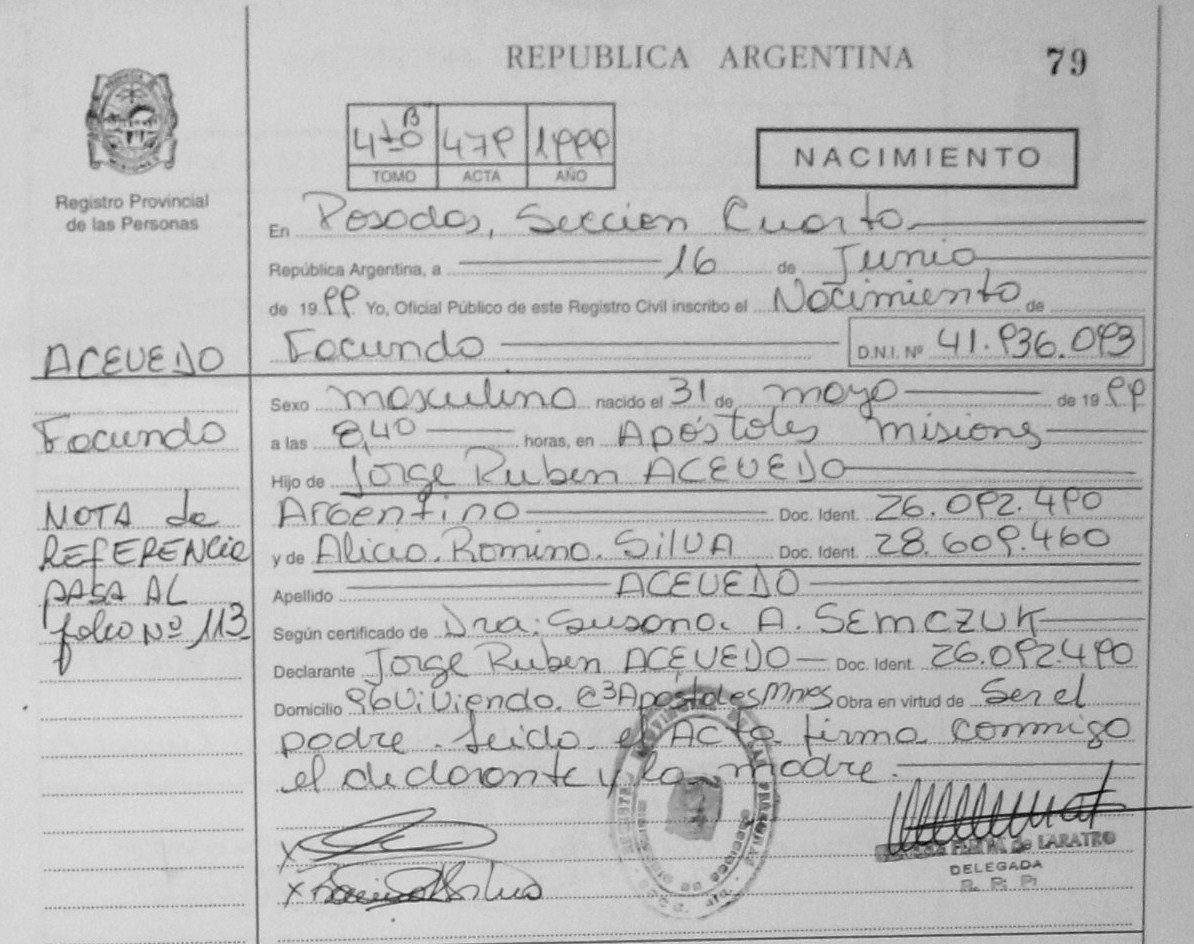 REPUBLICA ARGENTINA
79
4to B" 479 1999
TOMO ACTA AÑO
NACIMIENTO
Registro Provincial
de las Personas
En Posadas, Seccion Cuarta
República Argentina, a 16 de Junio,
de 1999 Yo, Oficial Público de este Registro Civil inscribo el Nacimiento de
ACEVEDO
Facundo D.N.I. Nº 41.936.093
Sexo masculino nacido el 31 de mayo de 1999
Facundo
a las 8,40 horas, en Apostoles Misions
Hijo de Jorge Ruben ACEVEDO
Argentino Doc. Ident. 26.092.490
y de Alicia Romina SilVA Doc. Ident. 28.609.460
Apellido ACEVEDO
NOTA de
REFERENCia
PASA AL
folio Nº 113
Según certificado de Dra: Susana A. SEMCZUK
Declarante Jorge Ruben ACEVEDO Doc. Ident. 26.092.490
Domicilio 96 Vivienda. Apostoles Mnes Obra en virtud de Ser el
padre. Leido el Acta firma conmigo
el declarante y la madre.
de LARATRO
DELEGADA
R. P. P.